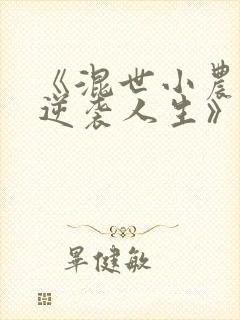 《混世小农
逆袭人生》
畢健敏